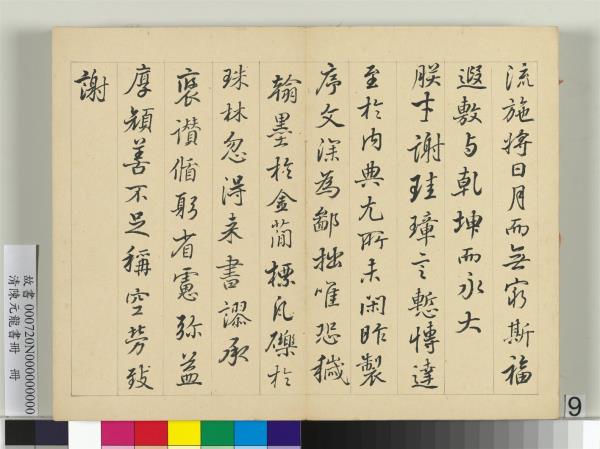 流施將日月而無窮斯福
遐敷与乾坤而永大
朕才謝珪璋言慙博達
至於内典尤所未閑昨製
序文深為鄙拙唯恐穢
翰墨於金簡標瓦礫於
珠林忽得来書謬承
褒讃循躬省慮弥益
厚顔善不足稱空勞致
謝
故書 000720N000000000
清陳元龍書冊 冊
9